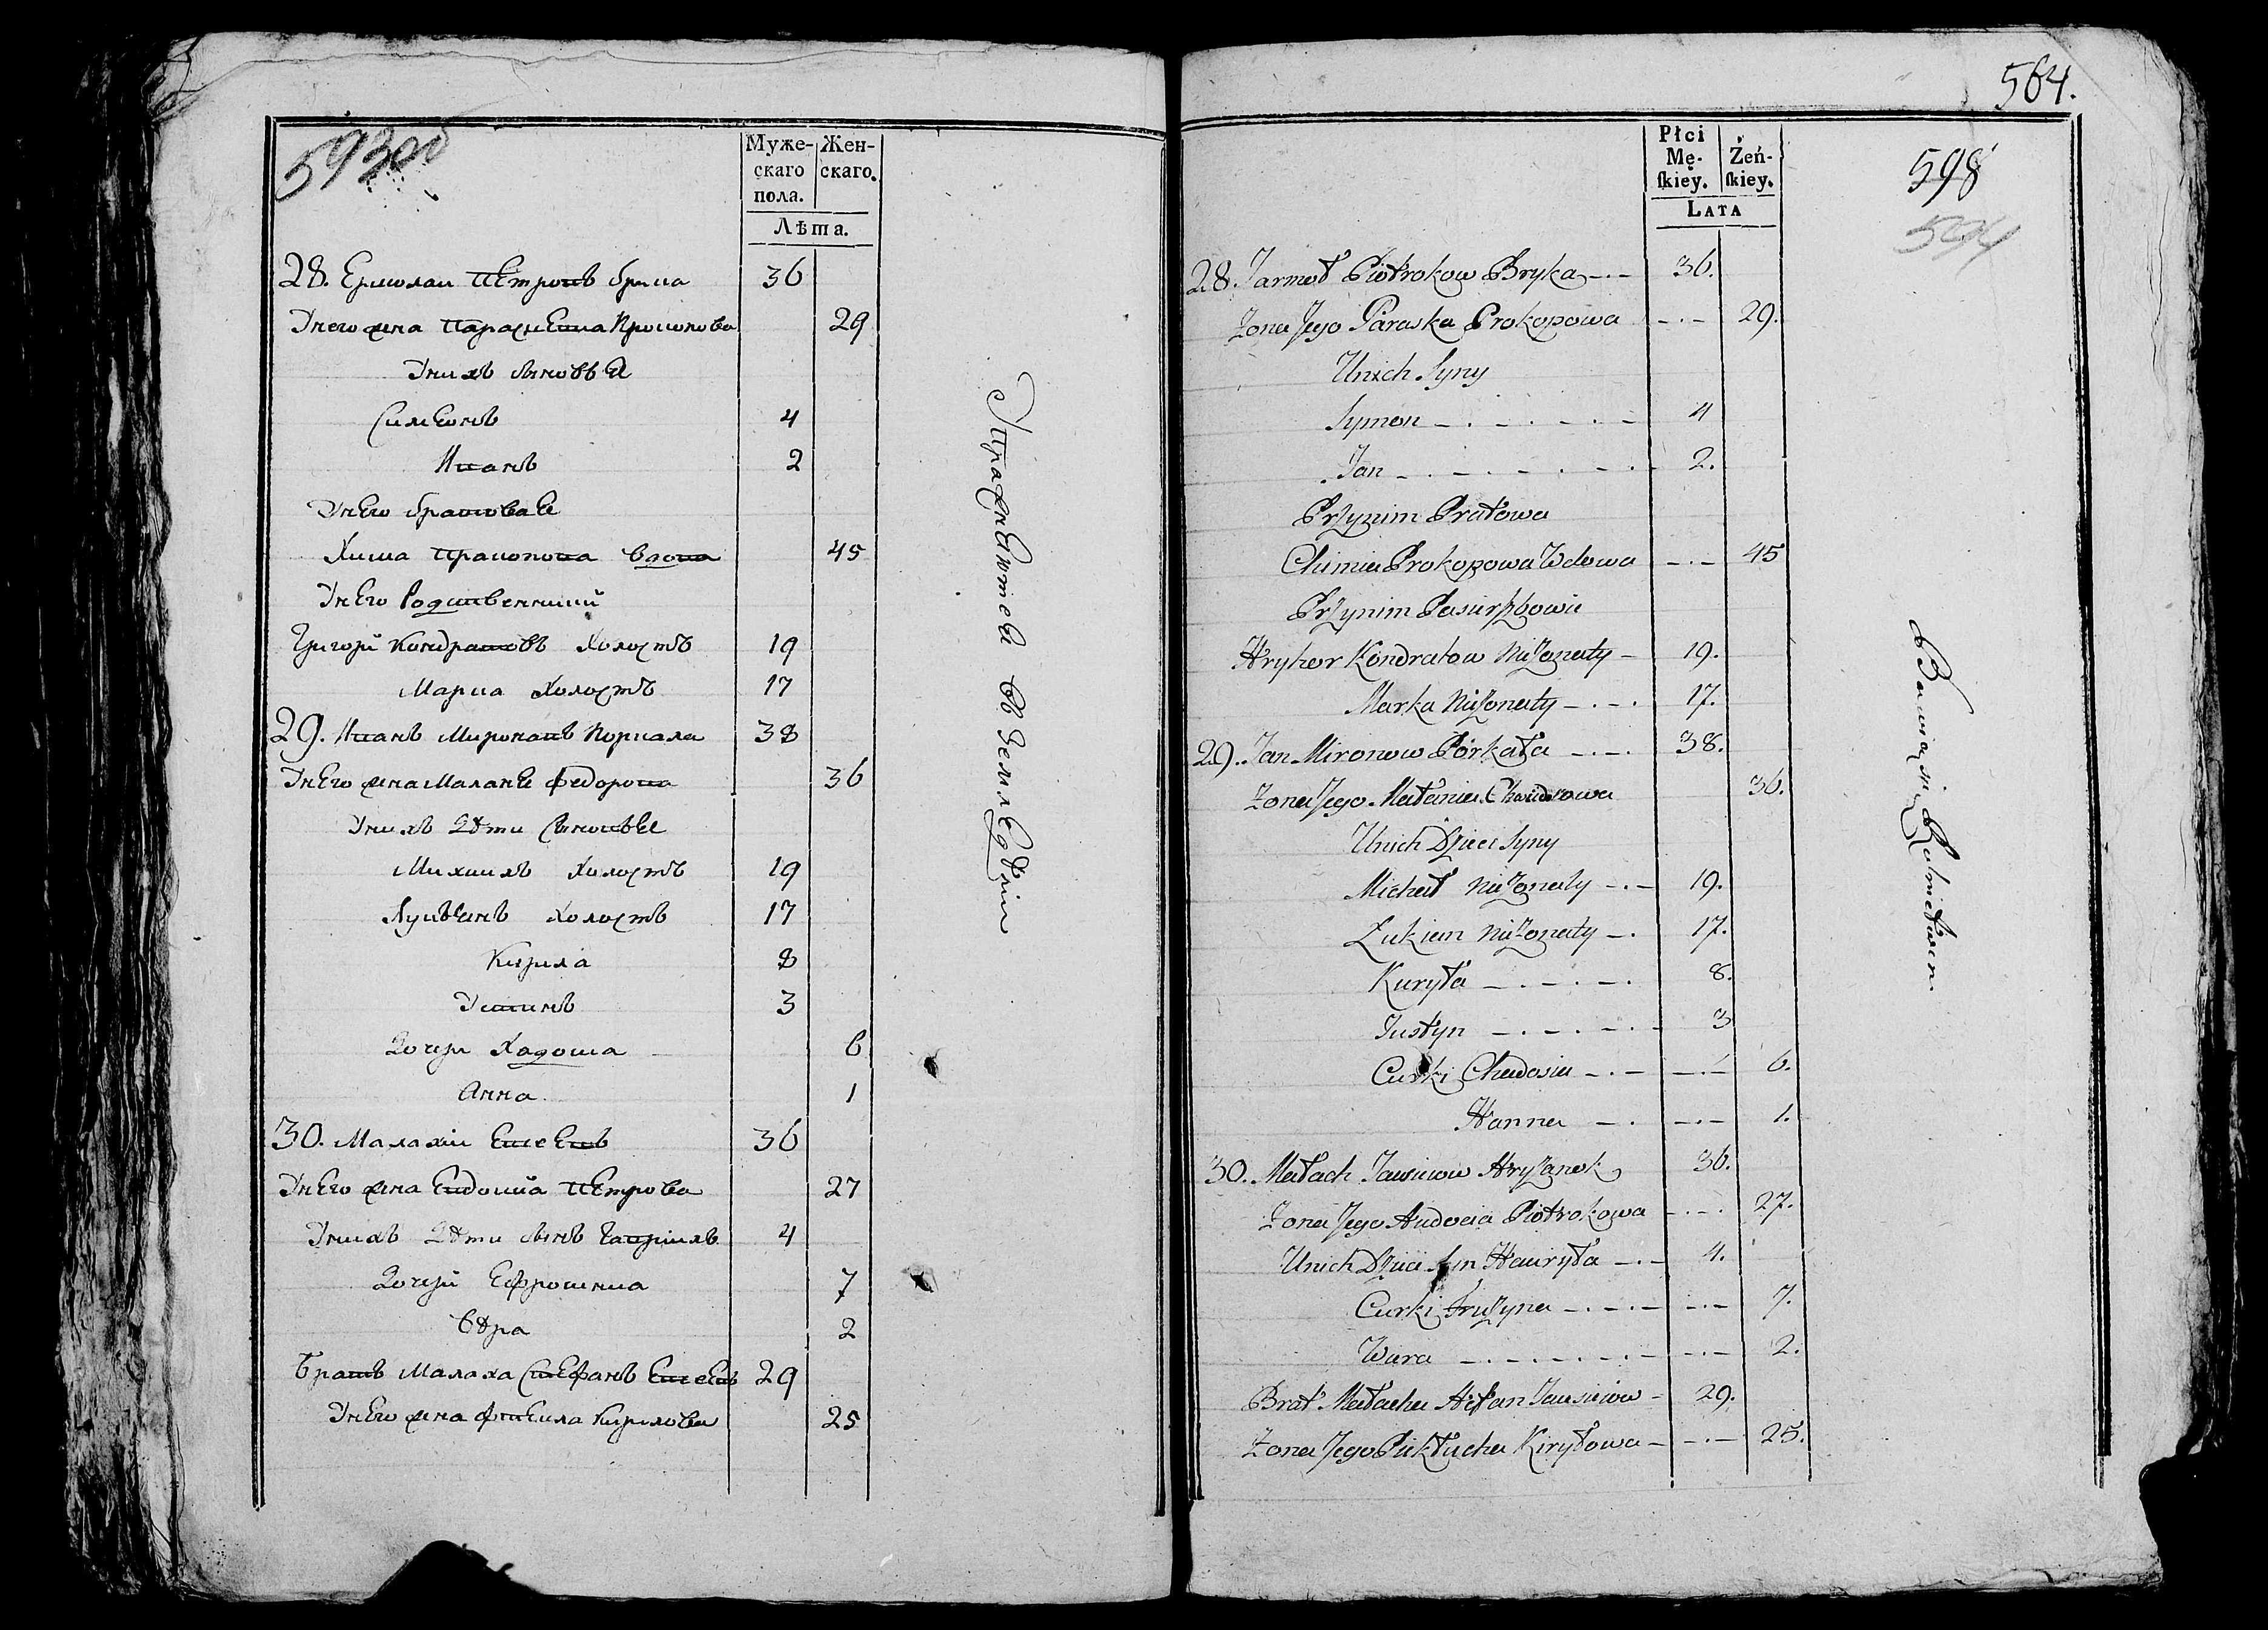 593 об
Муже-
скаго
пола.
Жен-
скаго.
Лѣта.
28. Ермолаи Петровъ брика 36
Унего жена Параскевиа Прокопова 29
Унихъ сыновья
Симеонъ 4
Иванъ 2
Унего братовая
Хима Пракопова вдова 45
Унего Родственники
Григорй Кондратовъ Холостъ 19
Марка Холостъ 17
29. Иванъ Миронавъ Поркала 38
Унего жена Маланья Федорова 36
Унихъ Дѣти Сыновья
Михаилъ Холостъ 19
Лукьянъ Холостъ 17
Кирила 8
Устинъ 3
Дочери Хадоша 6
Анна 1
30. Малахiи Евсеевъ 36
Унего жена Евдокия Петрова 27
Унихъ Дѣти сынъ Гаврiилъ 4
Дочери Ефросиниа 7
Вѣра 2
Братъ Малаха Стефанъ Евсеевъ 29
Унего жена Фекила Кирилова 25
Упражняются въ Земледѣлiи
564.
598
594
Płci
Mę-
skiey.
Żeń-
skiey.
Lata
28. Jarmoł Piotrokow Bryka 36.
Zona Jego Paraska Prokopowa 29.
Unich Syny
Symon 4
Jan 2.
Przynim Bratowa
Chimia Prokopowa Wdowa 45
Przynim Pasierzbowie
Hryhor Kondratow Niżonaty 19.
Marka Niżonaty 17.
29. Jan Mironow Porkała 38.
Zona Jego Małania Chwidorowa 36.
Unich Dzieci Syny
Michał Niżonaty 19.
Łukian Niżonaty 17.
Kuryła 8.
Justyn 3
Curki Chadosia 6.
Hanna 1.
30. Małach Jausiow Hryzanok 36.
Zona Jego Audocia Piotrokowa 27.
Unich Dzieci Syn Hauryła 4.
Curki Pruzyna 7.
Wiera 2.
Brat Małacha Sćefan Jausiow 29.
Zona Jego Piektucha Kiryłowa 25.
Bawią się Rolnictwem